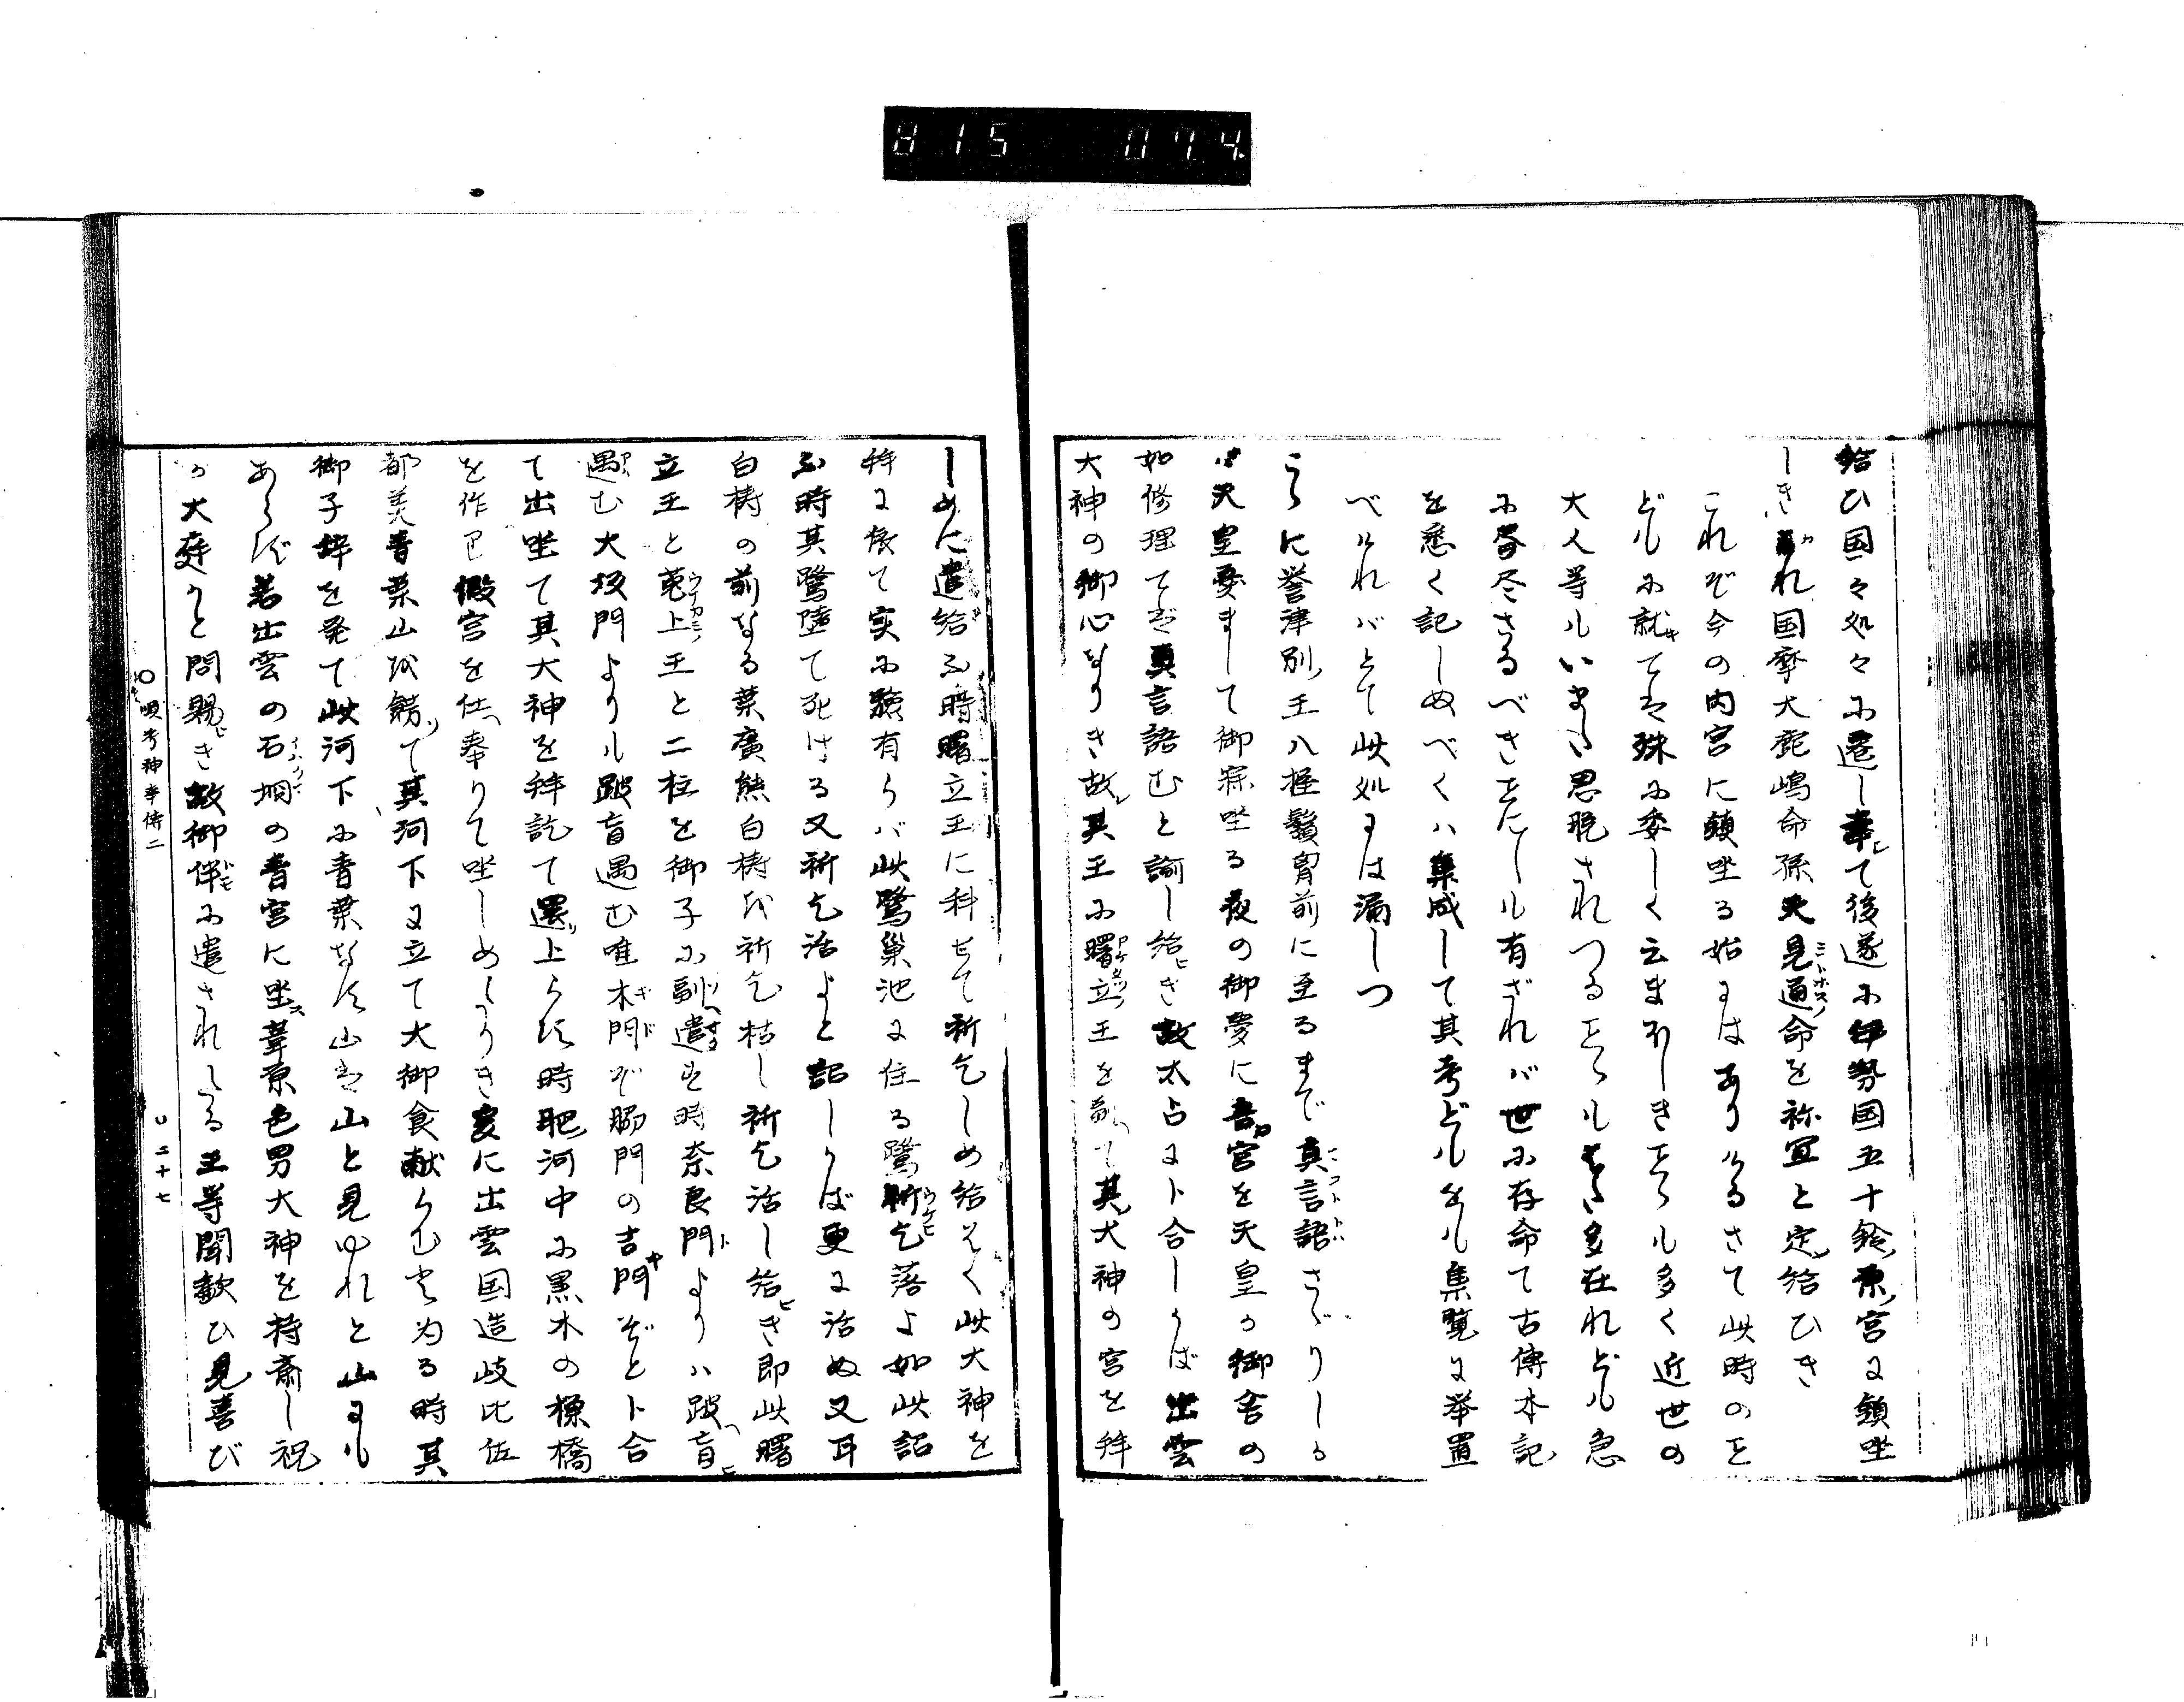 815 074
給ひ国々処々に遷し奉て後遂に伊勢国五十鈴原宮に鎮坐
しきかれ国摩大鹿嶋命孫天見通命を祢宜と定給ひき
これぞ今の内宮に鎮坐る始にはありけるさて此時のこと
どもに就ては殊に委しく云まほしきことも多く近世の
大人等もいまだ思脱されつることもまた多在れども急
に書尽さるべきことにしも有ざれバ世に存命て古傳本記
を悉く記しぬべくハ集成して其考どもをも集覧に挙置
べけれバとて此処には漏しつ
こゝに誉津別王八握鬚胷前に至るまで真言語さゞりしる
は天皇憂まして御寐坐る夜の御夢に吾宮を天皇の御舎の
如修理てば真言語むと諭し給き故太占に卜合しかば出雲
大神の御心なりき故其王に曙立王を副て其大神の宮を拜
しめに遣給ふ時曙立王に科せて祈乞しめ給はく此大神を
拜に依て実に驗有らバ此鷺巣池に住る鷺祈乞落よ如此詔
ふ時其鷺墮て死ける又祈乞活よと詔しかば更に活ぬ又耳
白梼の前なる葉廣熊白梼を祈乞枯し祈乞活し給き即此曙
立王と菟上王と二柱を御子に副遣す時奈良門よりハ跛盲
遇む大坂門よりも跛盲遇む唯木門ぞ脇門の吉門ぞと卜合
て出坐て其大神を拜訖て還上らす時肥河中に黒木の橾橋
を作り假宮を仕奉りて坐しめたりき爰に出雲国造岐比佐
都美青葉山を餝て其河下に立て大御食献らむと為る時其
御子辞を発て此河下に青葉なす山は山と見ゆれと山にも
あらず若出雲の石𥑎の曽宮に坐葦原色男大神を持斎し祝
の大庭かと問賜き故御伴に遣されたる王等聞歓ひ見喜び
〇唄考神事傳二
〇二十七